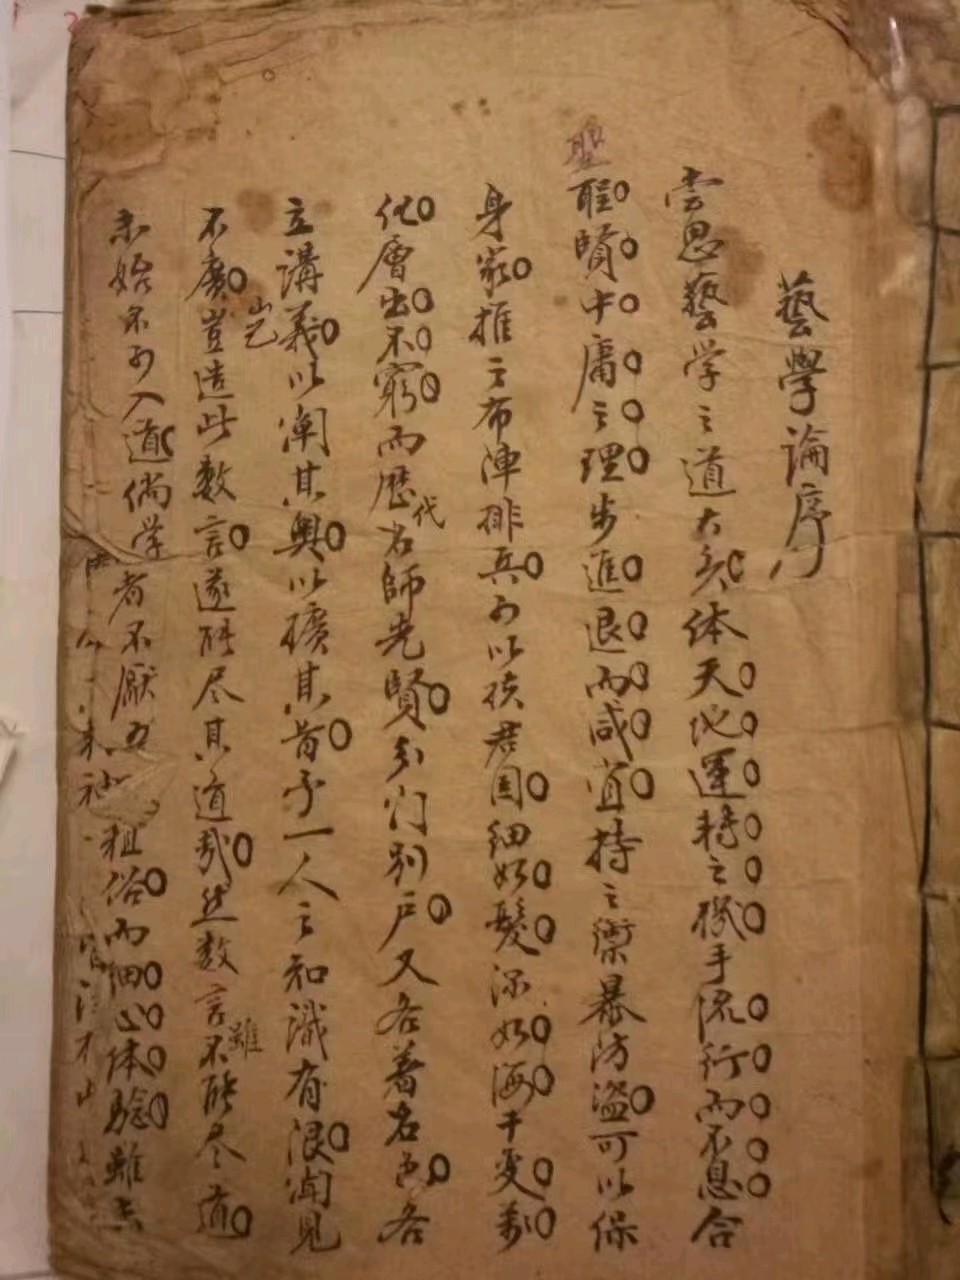 藝學論序
嘗思藝学之道大矣体天地運轉之機手流行而不息合
聖
聖賢中庸之理步進退而咸宜持之禦暴防盜可以保
身家推之布陣排兵可以扶君国細如髮深如海千变萬
化層出不窮而歷代名師先賢分门别户又各著名色各
立講義以闡其奧以擴其旨予一人之知識有限闻見
不廣豈
豈造此数言遂能尽其道哉然数言雖不能尽道
未始不可入道倘学者不厭
粗俗而细心体驗雖